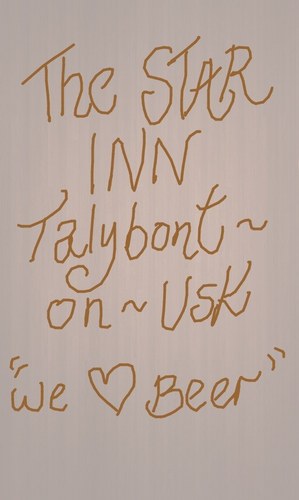 The STAR
INN
Talybont ~
on ~ Usk
"We ♡ Beer"